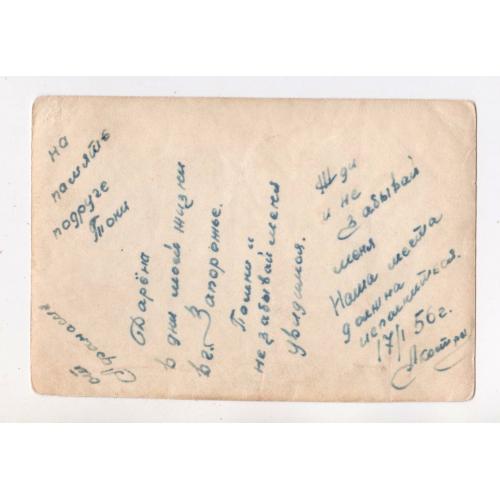 на
память
подруге
Тони
от
Дарёна
в дни моей жизни
в г. Запорожье.
Помни и
не забывай меня
увидимся.
Жди
и не
забывай
меня
Наша места
должна
исполнитеся.
17/I 56 г.